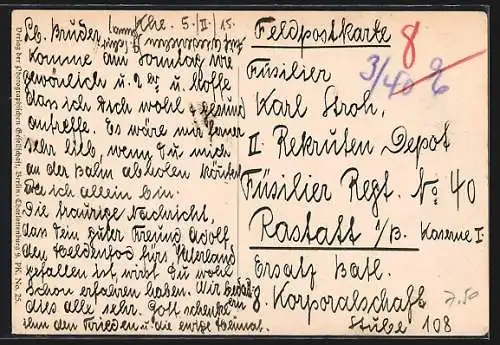 Lb. Bruder Khe. 5./II. 15.
Komme am Sonntag wie
gewöhnlich u. 2 Uhr u. hoffe
dass ich Dich wohl u. gesund
antreffe. Es wäre mir ferner
sehr lieb, wenn Du mich
an der Bahn abholen könntest
da ich allein bin.
Die traurige Nachricht,
dass Dein guter Freund Adolf
den Heldentod fürs Vaterland
gefallen ist, wirst Du wohl
schon erfahren haben. Wir bedauern
dies alle sehr. Gott schenke
ihm den Frieden u. die ewige Heimat.
Feldpostkarte
8
3/40
Füsilier
Karl Stroh,
II. Rekruten Depot
Füsilier Regt. No 40
Rastatt i/B. Kaserne I
Ersatz Batl.
8. Korporalschaft
Stube 108
7.50
Verlag der Photographischen Gesellschaft, Berlin-Charlottenburg 9. PK. No. 25.